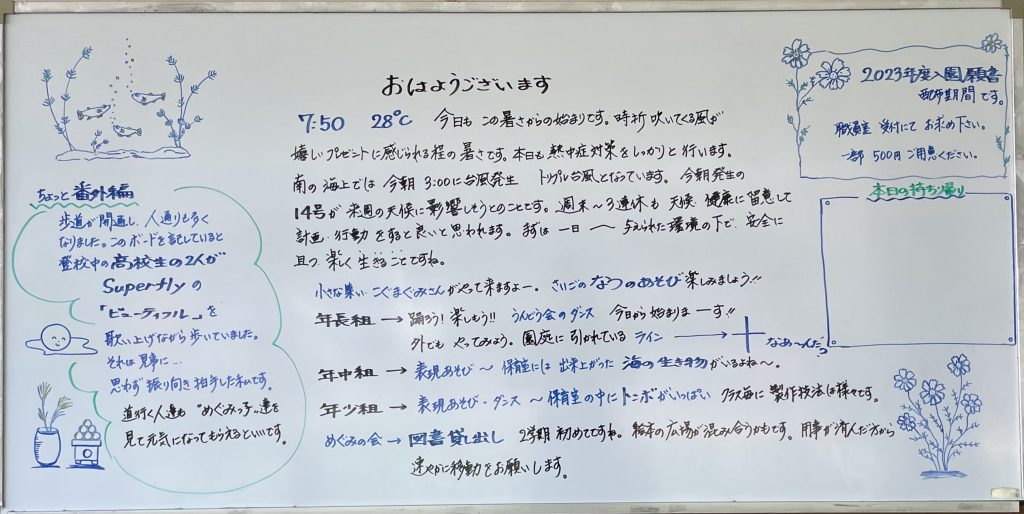 おはようございます
7:50 28℃ 今日も この暑さからの始まりです。時折 吹いてくる風が
嬉しいプレゼントに感じられる程の暑さです。本日も 熱中症対策をしっかりと行います。
南の海上では 今朝 3:00に台風発生 トリプル台風となっています。今朝発生の
14号が 来週の天候に影響しそうとのことです。週末〜3連休も 天候・健康に留意して
計画・行動 をすると良いと思われます。まずは 一日 〜 与えられた環境の下で、安全に
且つ 楽しく 生きることですね。
小さな集い こぐまぐみさんがやって来ますよー。さいごの なつのあそび 楽しみましょう!!
年長組 → 踊ろう! 楽しもう!! うんどう会のダンス 今日から始まりまーす!!
外でも やってみよう。園庭に 引かれている ライン → なぁ〜んだっ
年中組 → 表現あそび 〜 保育室には 出来上がった 海の生き物がいるよね〜。
年少組 → 表現あそび・ダンス 〜 保育室の中にトンボがいっぱい クラス毎に 製作技法は様々です。
めぐみの会 → 図書貸し出し 2学期 初めてですね。絵本の広場が混み合うかもです。用事が済んだ方から
速やかに移動をお願いします。
ちょっと 番外編
歩道が開通し、人通りも多く
なりました。このボードを記していると
登校中の高校生の2人が
Superflyの
「ビューティフル」を
歌い上げながら歩いていました。
それは見事に…
思わず振り向き 拍手した私です。
道行く人達も “めぐみっ子”達を
見て元気になってもらえるといいです。
2023年度入園願書
配布期間です。
職員室 受付にて お求め下さい。
一部 500円 ご用意ください。
本日の持ち帰り